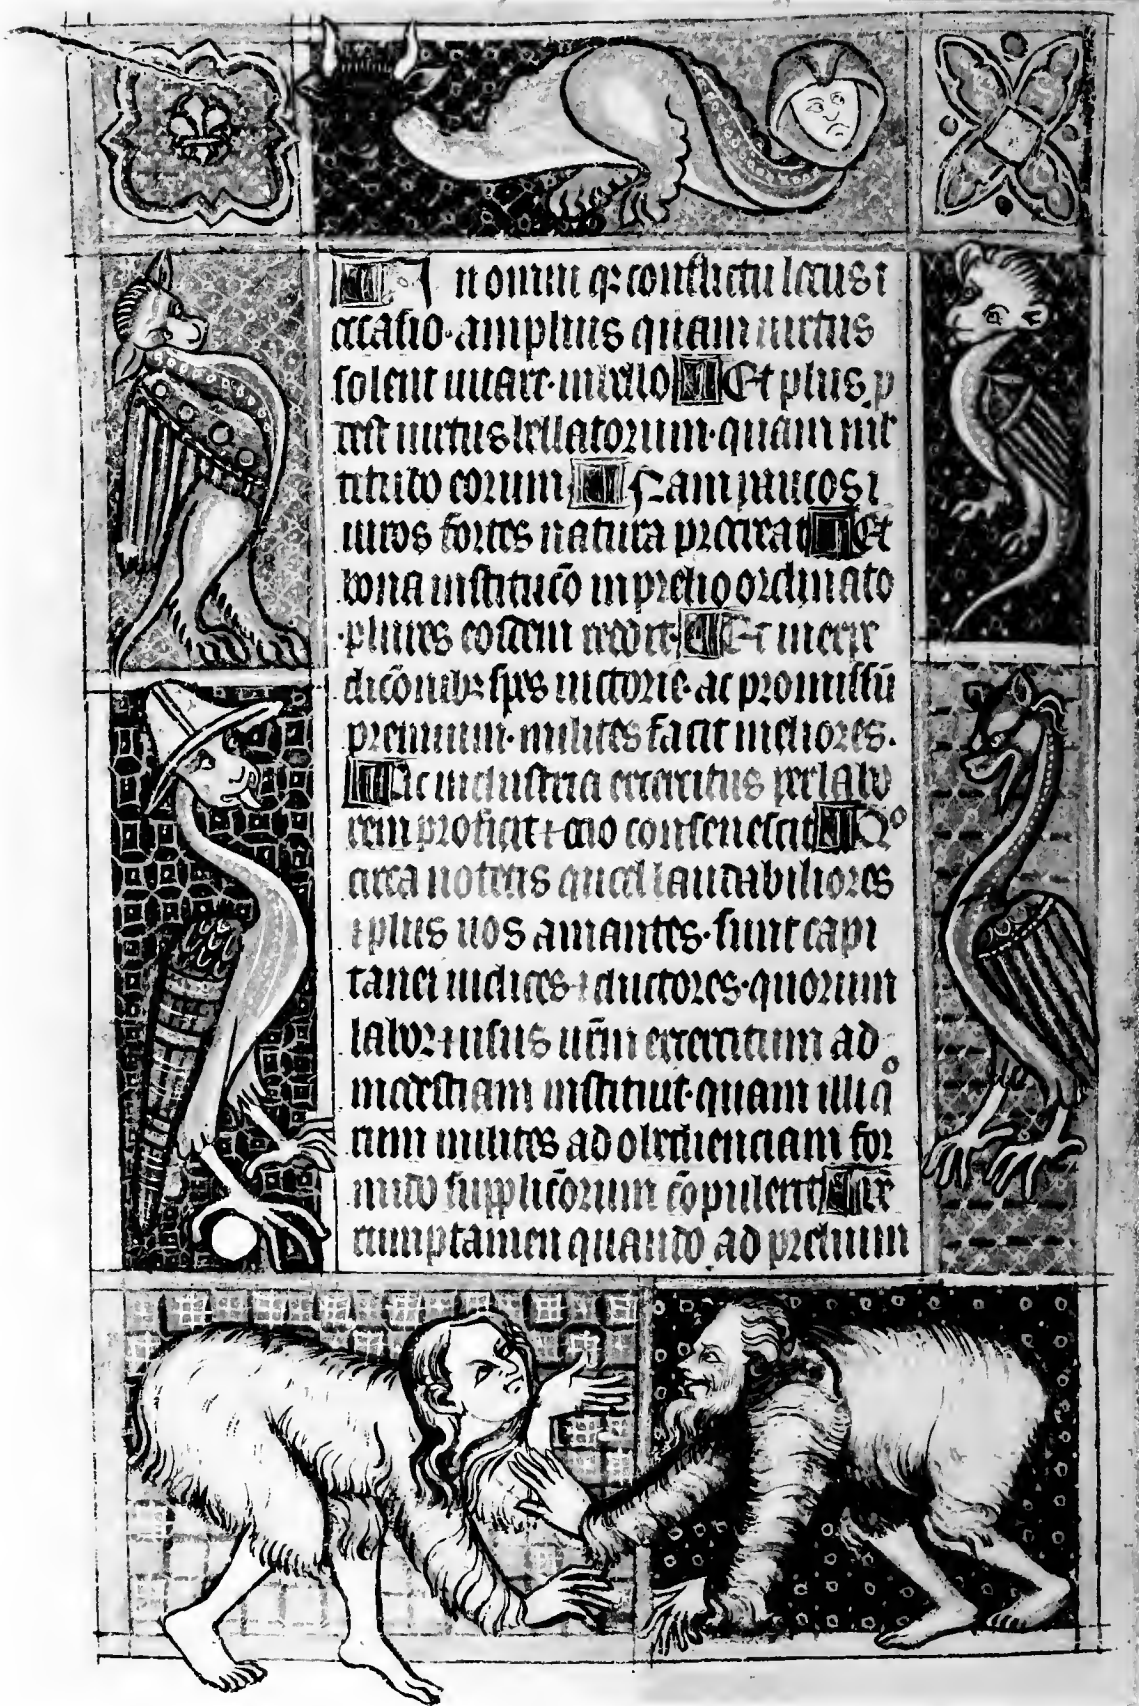 In omni q; conflictu locus ⁊
occasio· amplius quam uirtus
solent iuuare· in bello Et plus p
test uirtus bellatorum· quam mul
titudo eorum Nam paucos ⁊
uiros fortes natura procreat Et
bona institucō in prelio ordinato
·plures eosdem reddit· Et
dicōnibꝫ spes uictorie· ac promissū
premium· milites facit meliores·
Ac industria exercitus per labo
rem proficit ⁊ ocio consenescit Qº
circa laudabiliores
⁊ plus uos amantes· sunt capi
tanei iudices ⁊ ductores· quorum
labor ⁊ usus urm̄ exercitum ad
modestiam instituit· quam illi qº
rum milites ad obedienciam for
mido supplicōrum cōpulerit
quando ad prelium